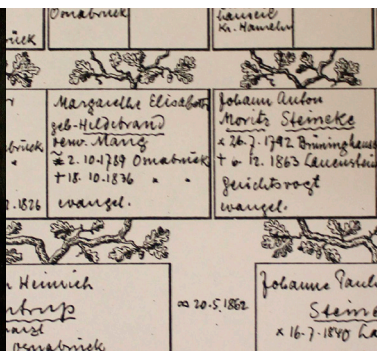 Osnabrück
hausen
Kr. Hameln
brück
Margarethe Elisabeth
geb. Hildebrand
verw. Meng
* 2.10.1789 Osnabrück
+ 18.10.1836 " "
evangel.
Johann Anton
Moritz Steineke
* 26.7.1792 Brüninghausen
+ 6 12. 1863 Lauenstein
Gerichtsvogt
evangel.
nabrück
"
2.1826
Heinrich
∞ 20.5.1862
Osnabrück
Johanne Paul
Steine
* 16.7.1840 La